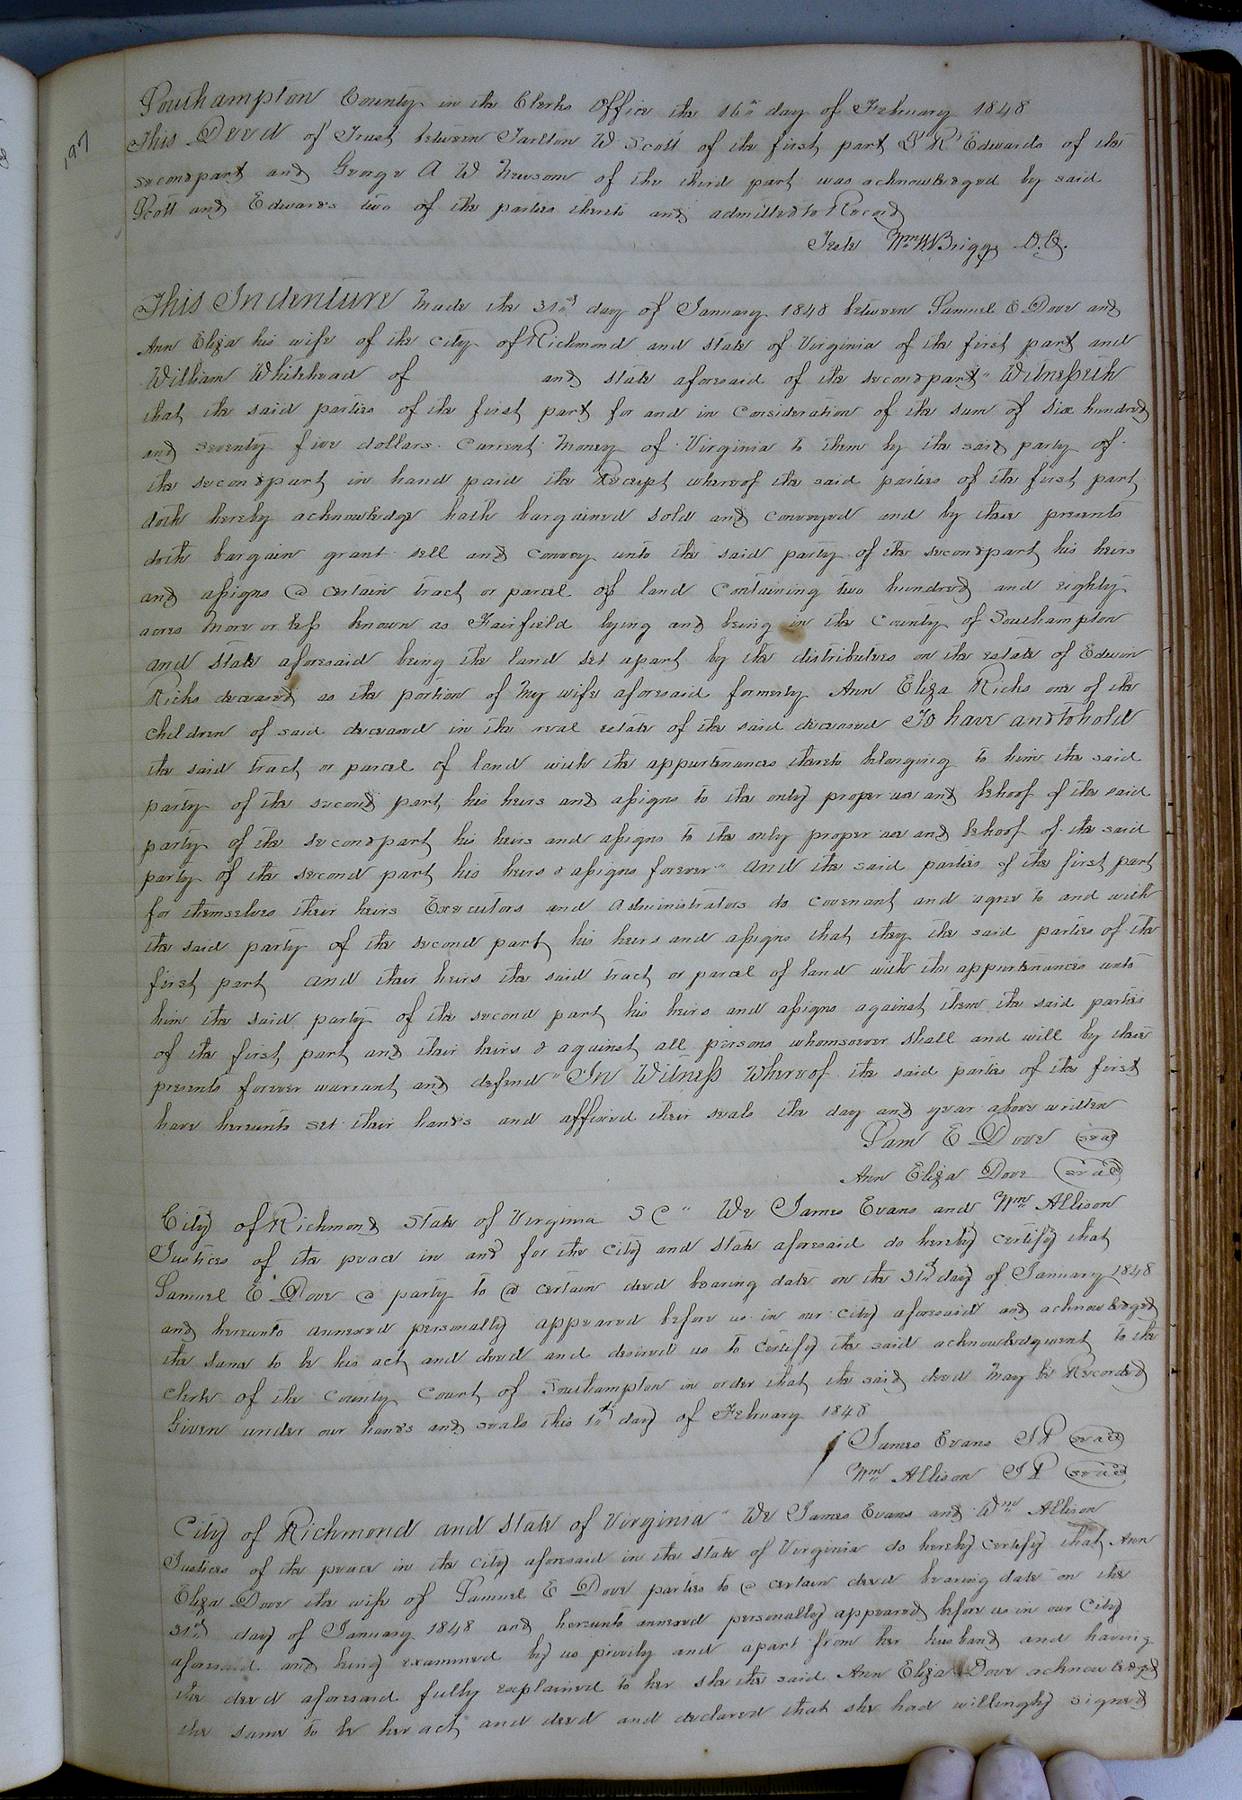 197
Southampton County in the Clerks Office the 16th day of February 1848
This Deed of Trust between Tarlton W Scott of the first part J R Edwards of the
second part and George A W Newsom of the third part was acknowledged by said
Scott and Edwards two of the parties thereto and admitted to Record
Teste Wm W Briggs D.C.
This Indenture Made the 31st day of January 1848 between Samuel E Dove and
Ann Eliza his wife of the city of Richmond and state of Virginia of the first part and
William Whitehead of and state aforesaid of the second part" Witnesseth
that the said parties of the first part for and in Consideration of the sum of Six hundred
and seventy five dollars Current Money of Virginia to them by the said party of
the second part in hand paid the Receipt whereof the said parties of the first part
doth hereby acknowledge hath bargained sold and Conveyed and by these presents
doth bargain grant sell and Convey unto the said party of the second part his heirs
and assigns a certain tract or parcel of land Containing two hundred and eighty
acres More or less known as Fairfield lying and being in the County of Southampton
and State aforesaid being the land set apart by the distributees on the estate of Edwin
Ricks deceased as the portion of My wife aforesaid formerly Ann Eliza Ricks one of the
children of said deceased in the real estate of the said deceased To have and to hold
the said tract or parcel of land with the appurtenances thereto belonging to him the said
party of the second part his heirs and assigns to the only proper use and behoof of the said
party of the second part his heirs and assigns to the only proper use and behoof of the said
party of the second part his heirs & assigns forever" And the said parties of the first part
for themselves their heirs Executors and Administrators do covenant and agree to and with
the said party of the second part his heirs and assigns that they the said parties of the
first part and their heirs the said tract or parcel of land with the appurtenances unto
him the said party of the second part his heirs and assigns against them the said parties
of the first part and their heirs & against all persons whomsoever Shall and will by these
presents forever warrant and defend" In Witness Whereof the said parties of the first
have hereunto set their hands and affixed their seals the day and year above written
Sam E Dove (seal)
Ann Eliza Dove (seal)
City of Richmond State of Virginia S C" We James Evans and Wm Allison
Justices of the peace in and for the City and State aforesaid do hereby certify that
Samuel E Dove a party to a certain deed bearing date on the 31st day of January 1848
and hereunto annexed personally appeared before us in our City aforesaid and acknowledged
the same to be his act and deed and desired us to Certify the said acknowledgment to the
clerk of the County Court of Southampton in order that the said deed May be Recorded
Given under our hands and seals this day of February 1848
James Evans J P (seal)
Wm Allison J P (seal)
City of Richmond and State of Virginia" We James Evans and Wm Allison
Justices of the peace in the City aforesaid in the State of Virginia do hereby Certify that Ann
Eliza Dove the wife of Samuel E Dove parties to a certain deed bearing date on the
31st day of January 1848 and hereunto annexed personally appeared before us in our City
aforesaid and being examined by us privily and apart from her husband and having
the deed aforesaid fully explained to her she the said Ann Eliza Dove acknowledged
the same to be her act and deed and declared that she had willingly signed